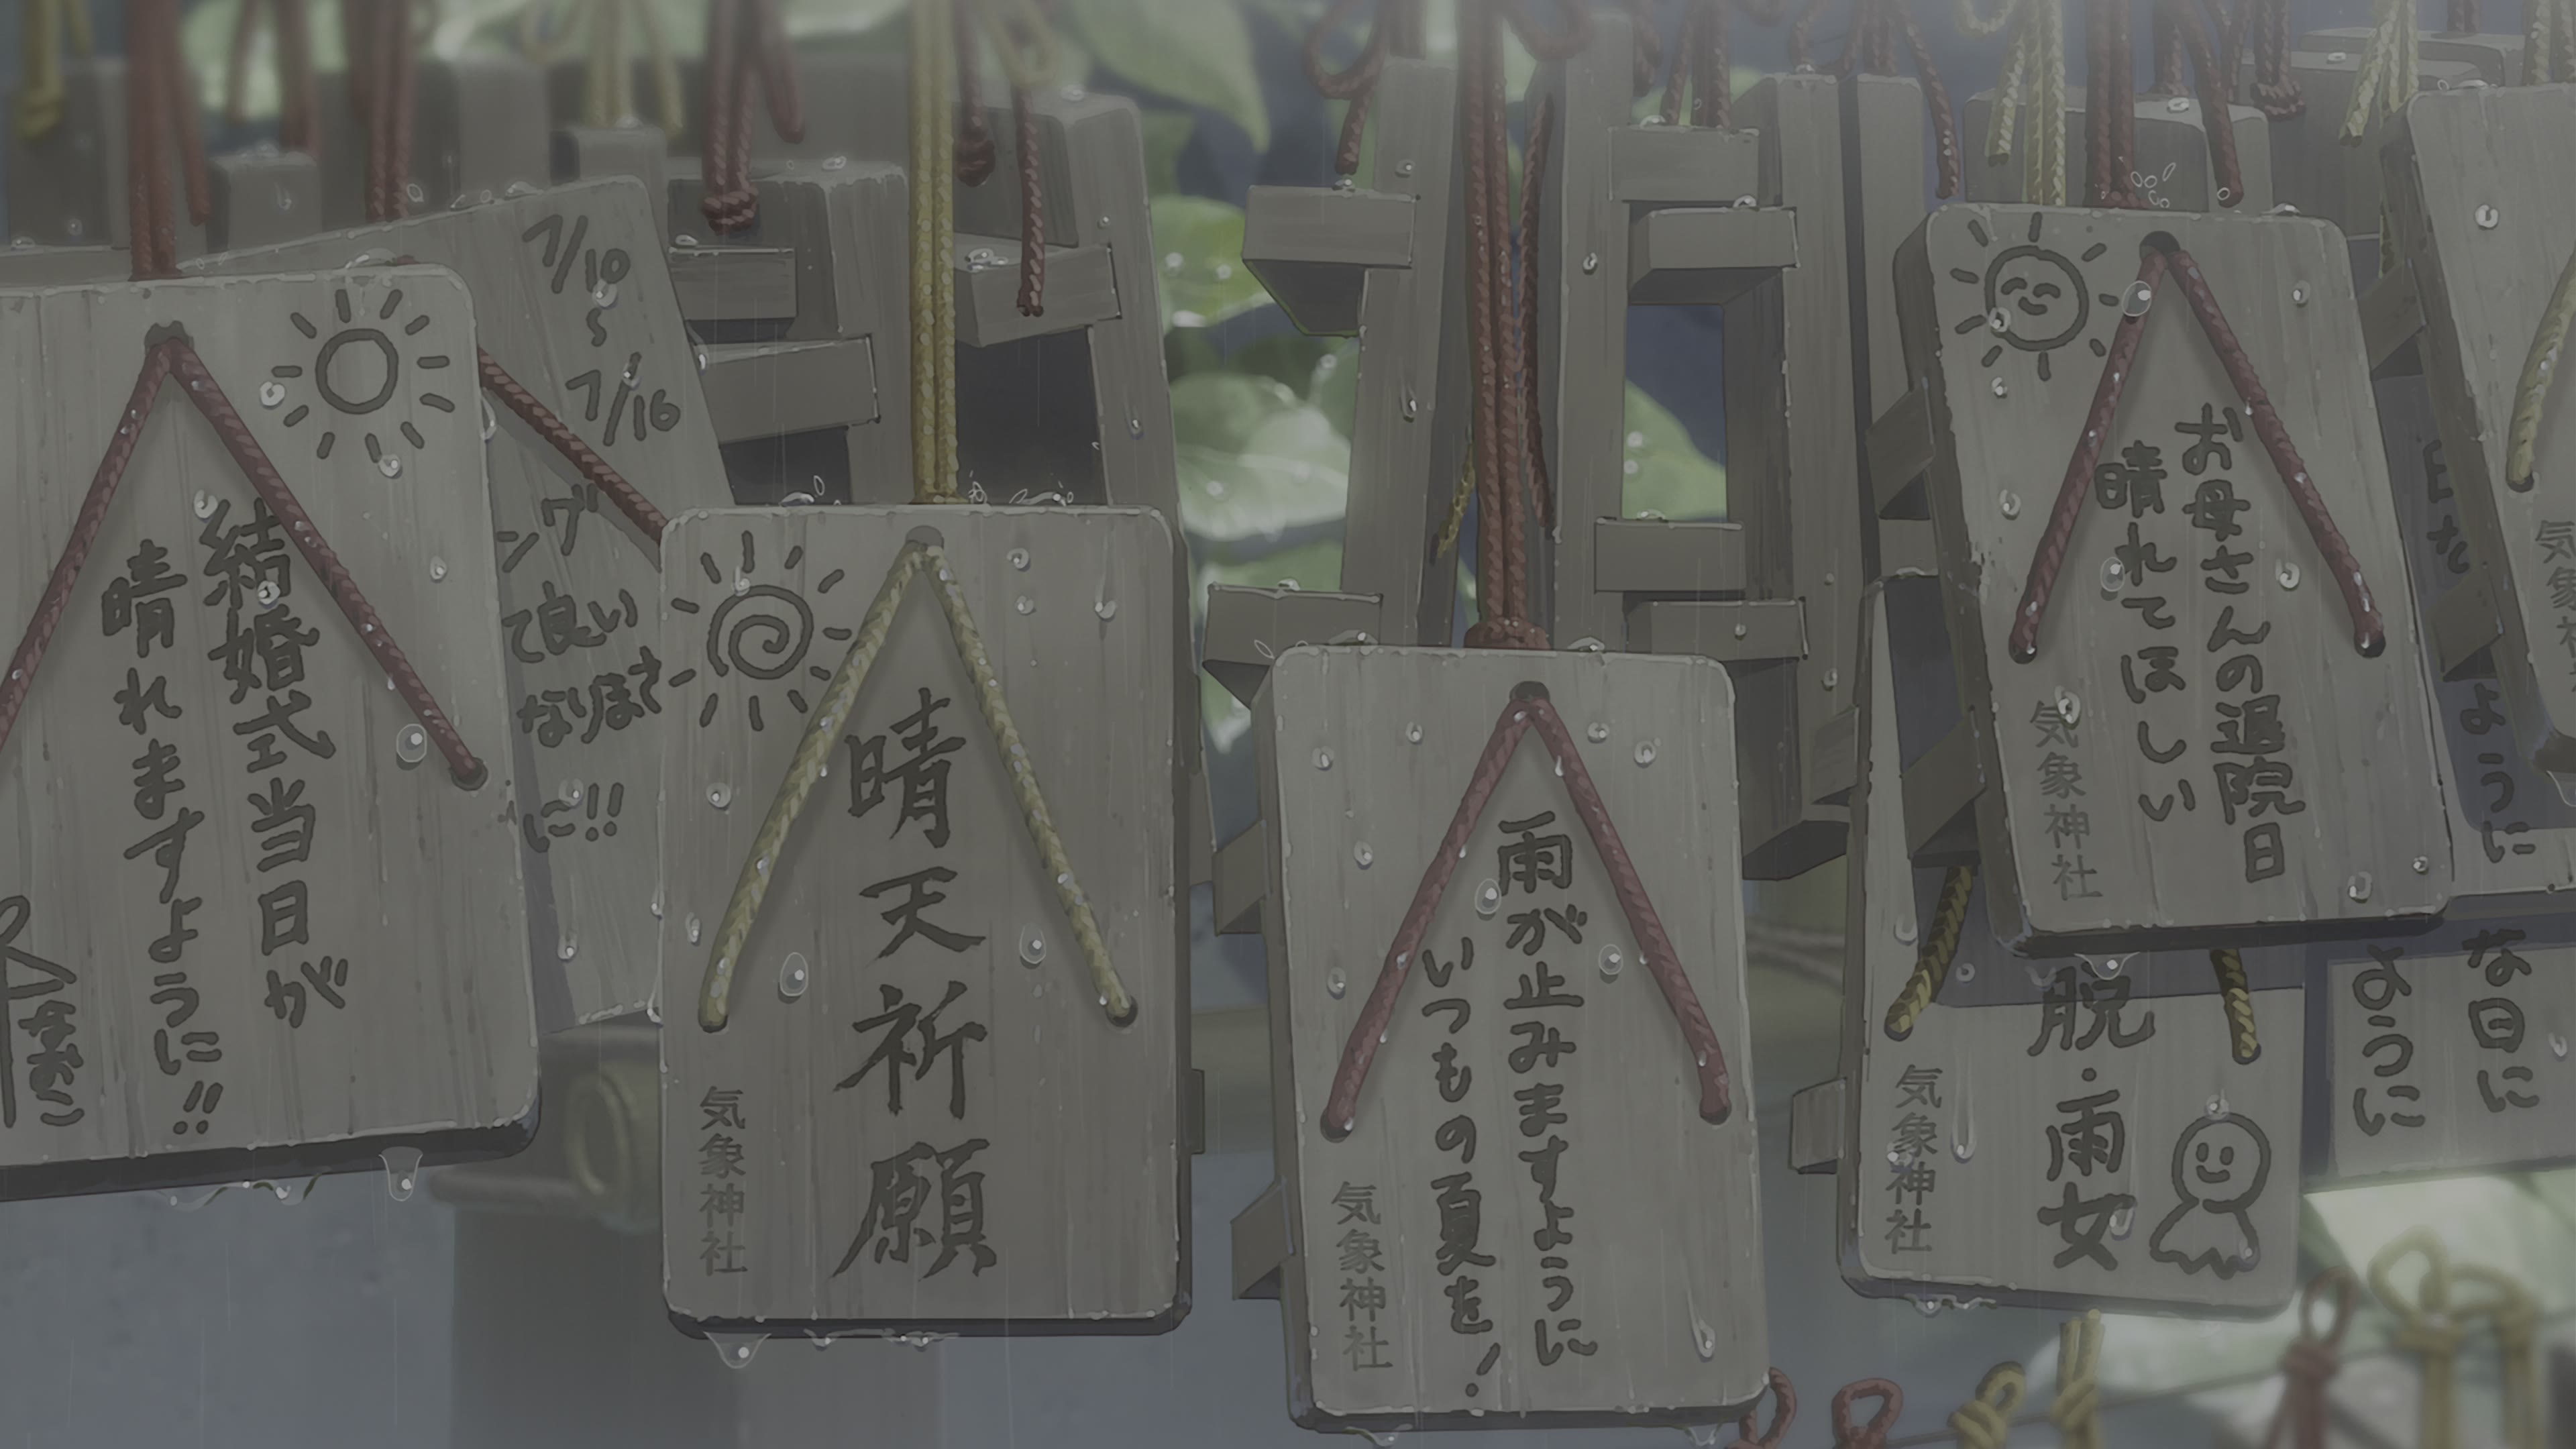 結婚式当日が
晴れますように!!
7/10
〜
7/16
ング
て良い
なりまさ
に!!
晴天祈願
気象神社
雨が止みますように
いつもの夏を!
気象神社
お母さんの退院日
晴れてほしい
気象神社
脱・雨女
気象神社
な日に
ように
ように
気象神